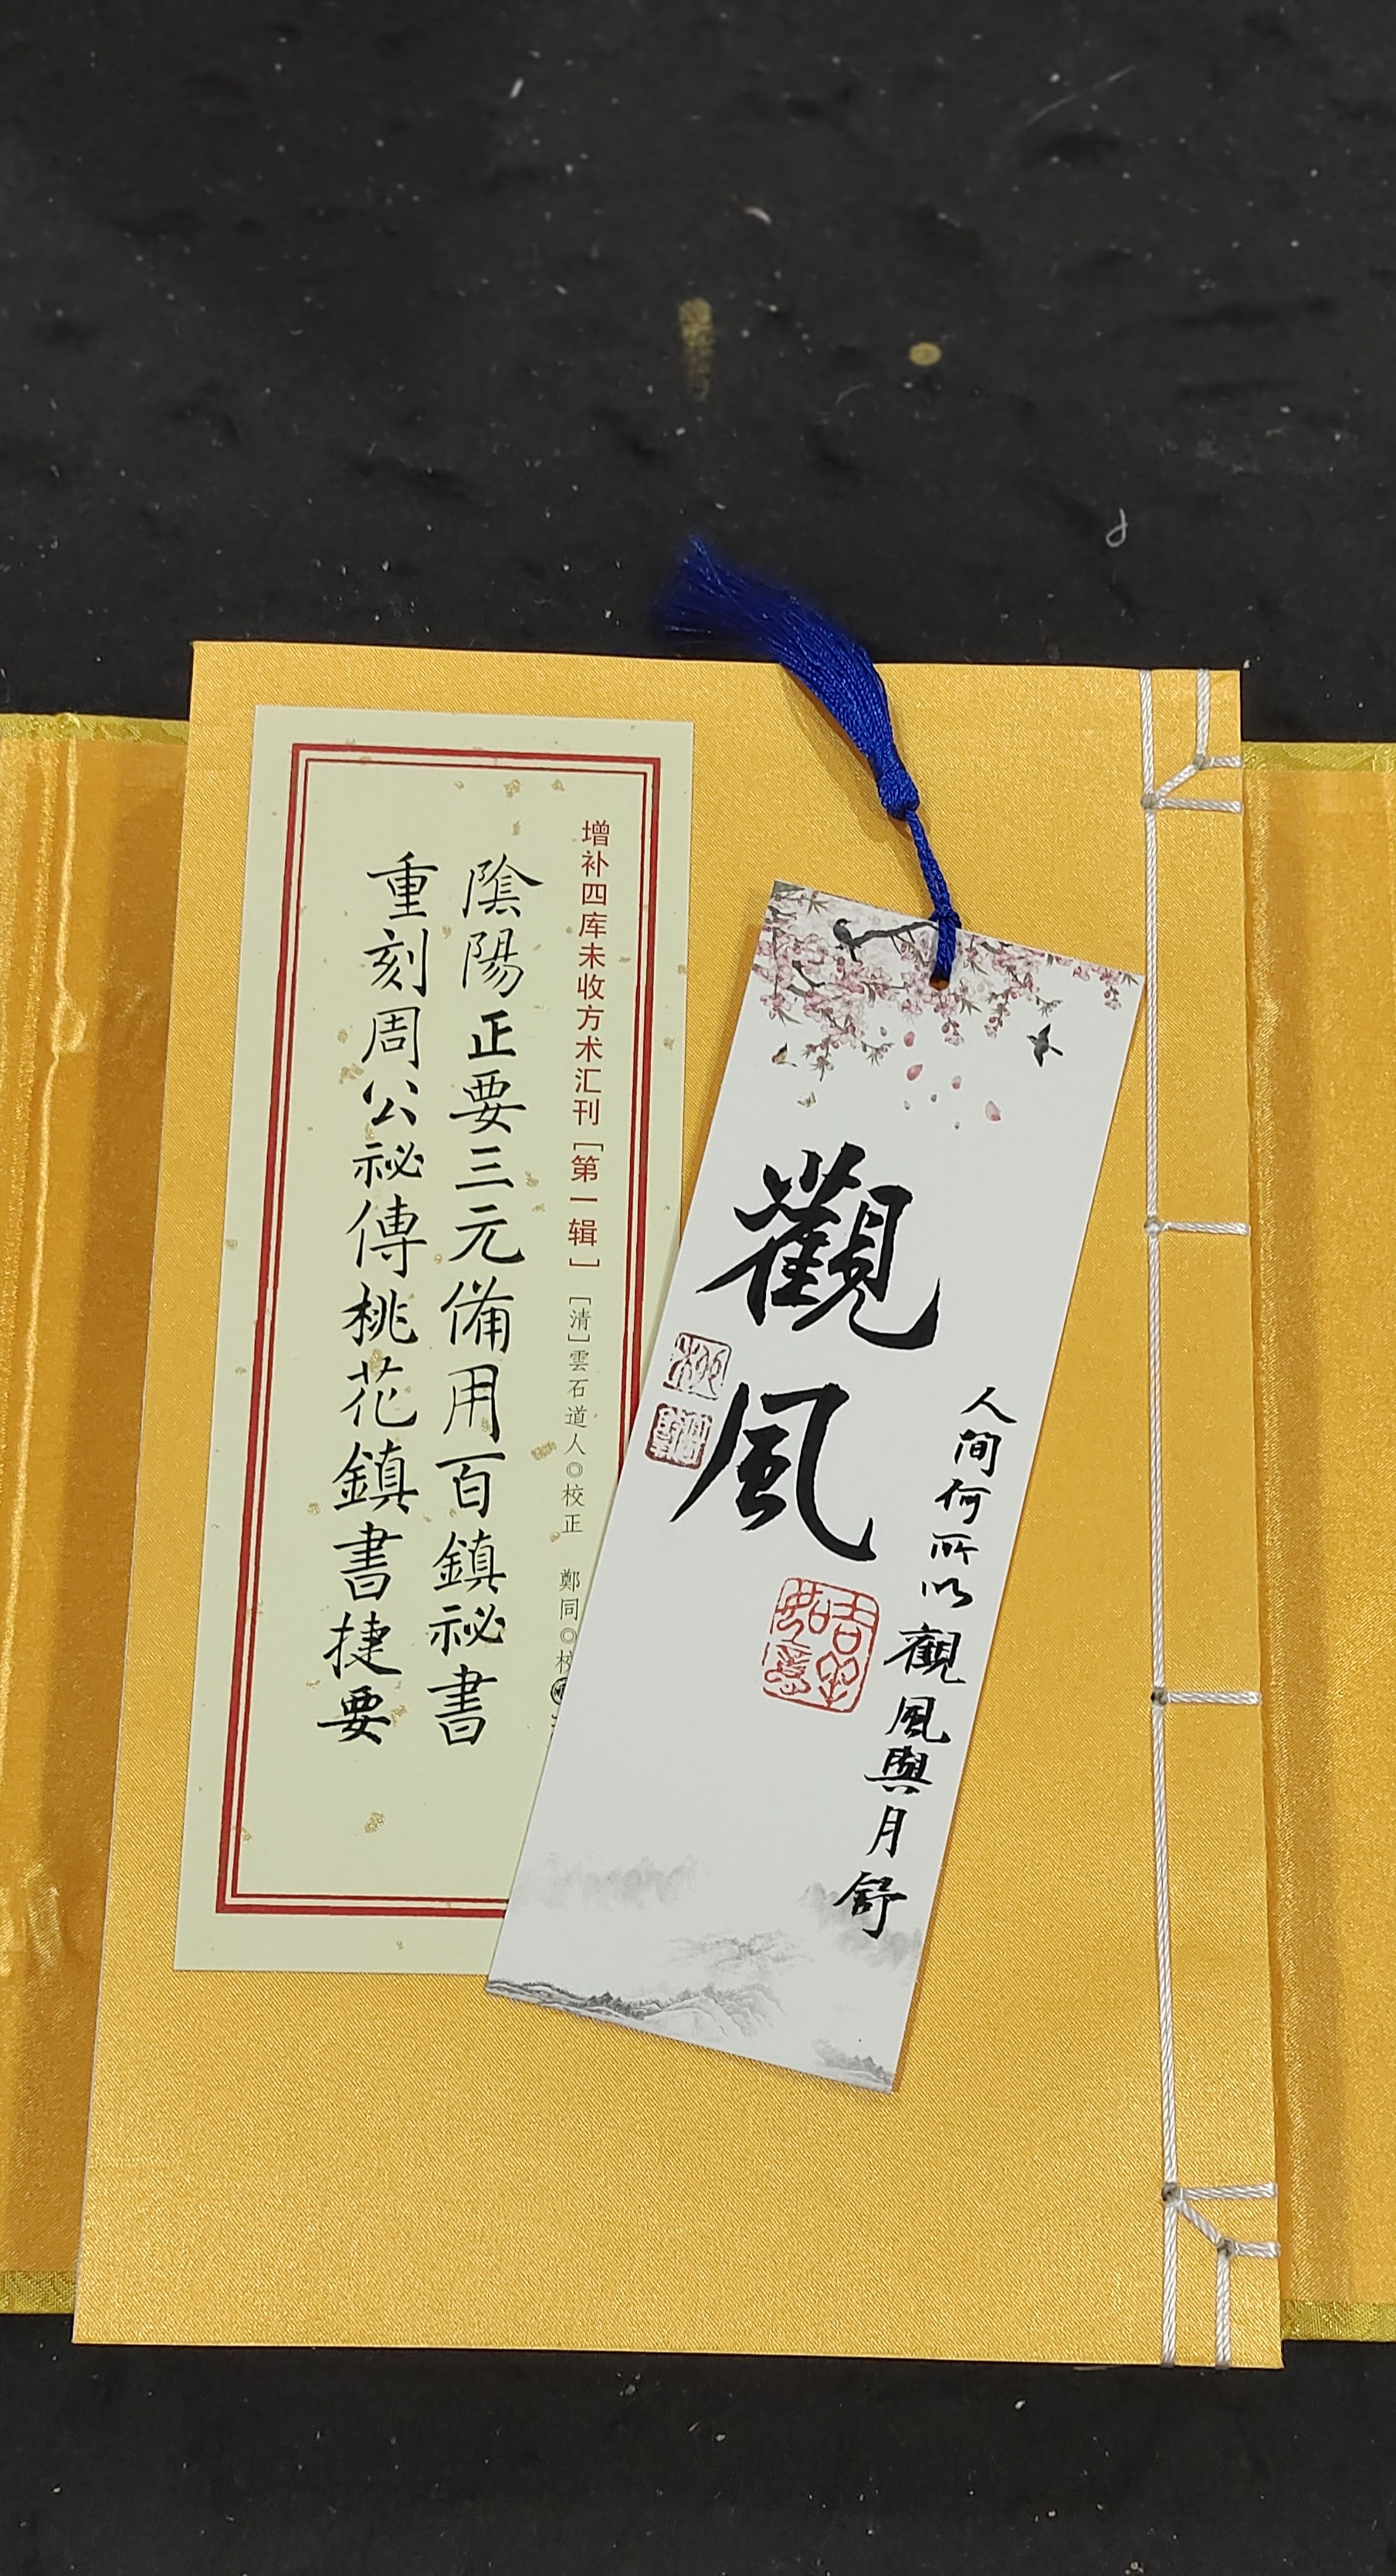 增补四库未收方术汇刊［第一辑］
［清］雲石道人◎校正　鄭同◎校
陰陽正要三元備用百鎮祕書
重刻周公祕傳桃花鎮書捷要
觀風
人間何所以觀風與月舒
吉祥如意